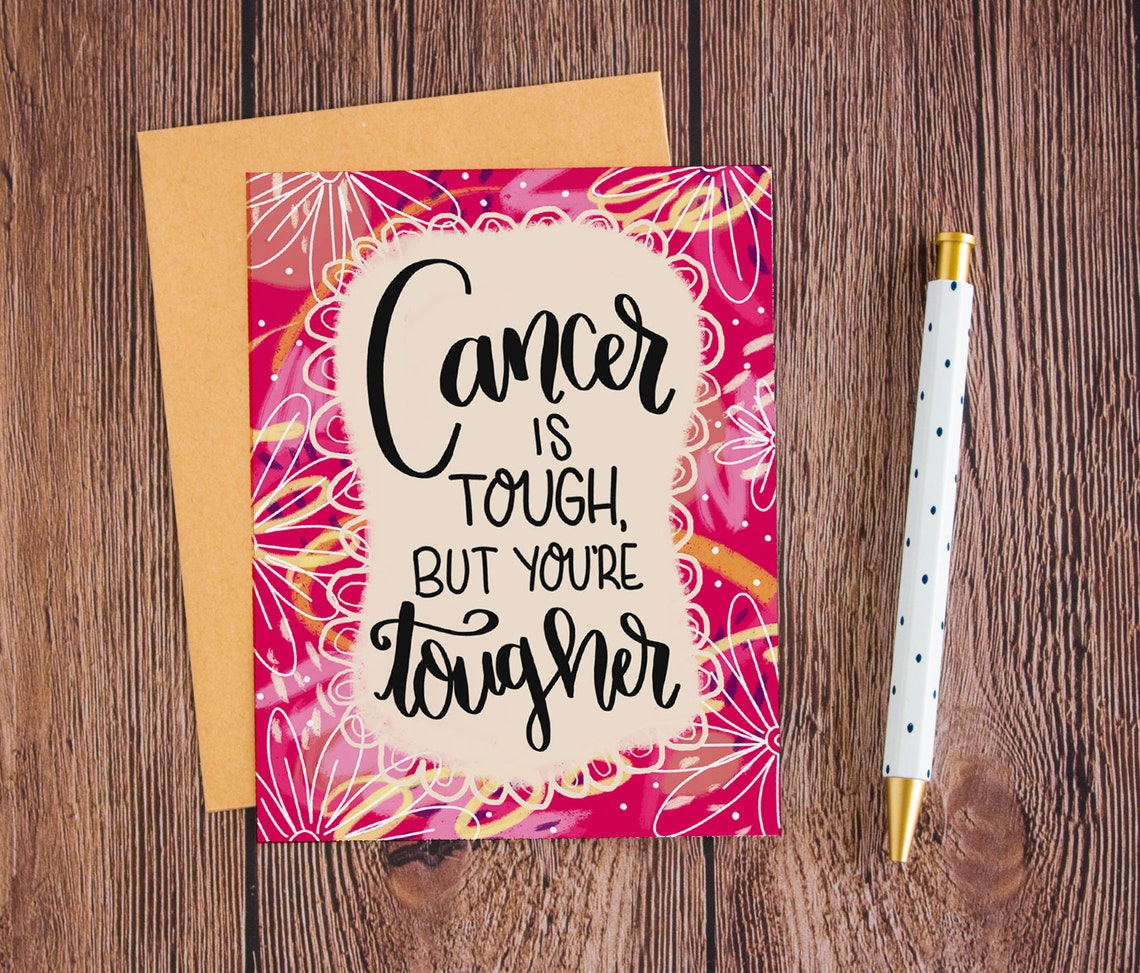 Cancer
IS
TOUGH,
BUT YOU'RE
tougher